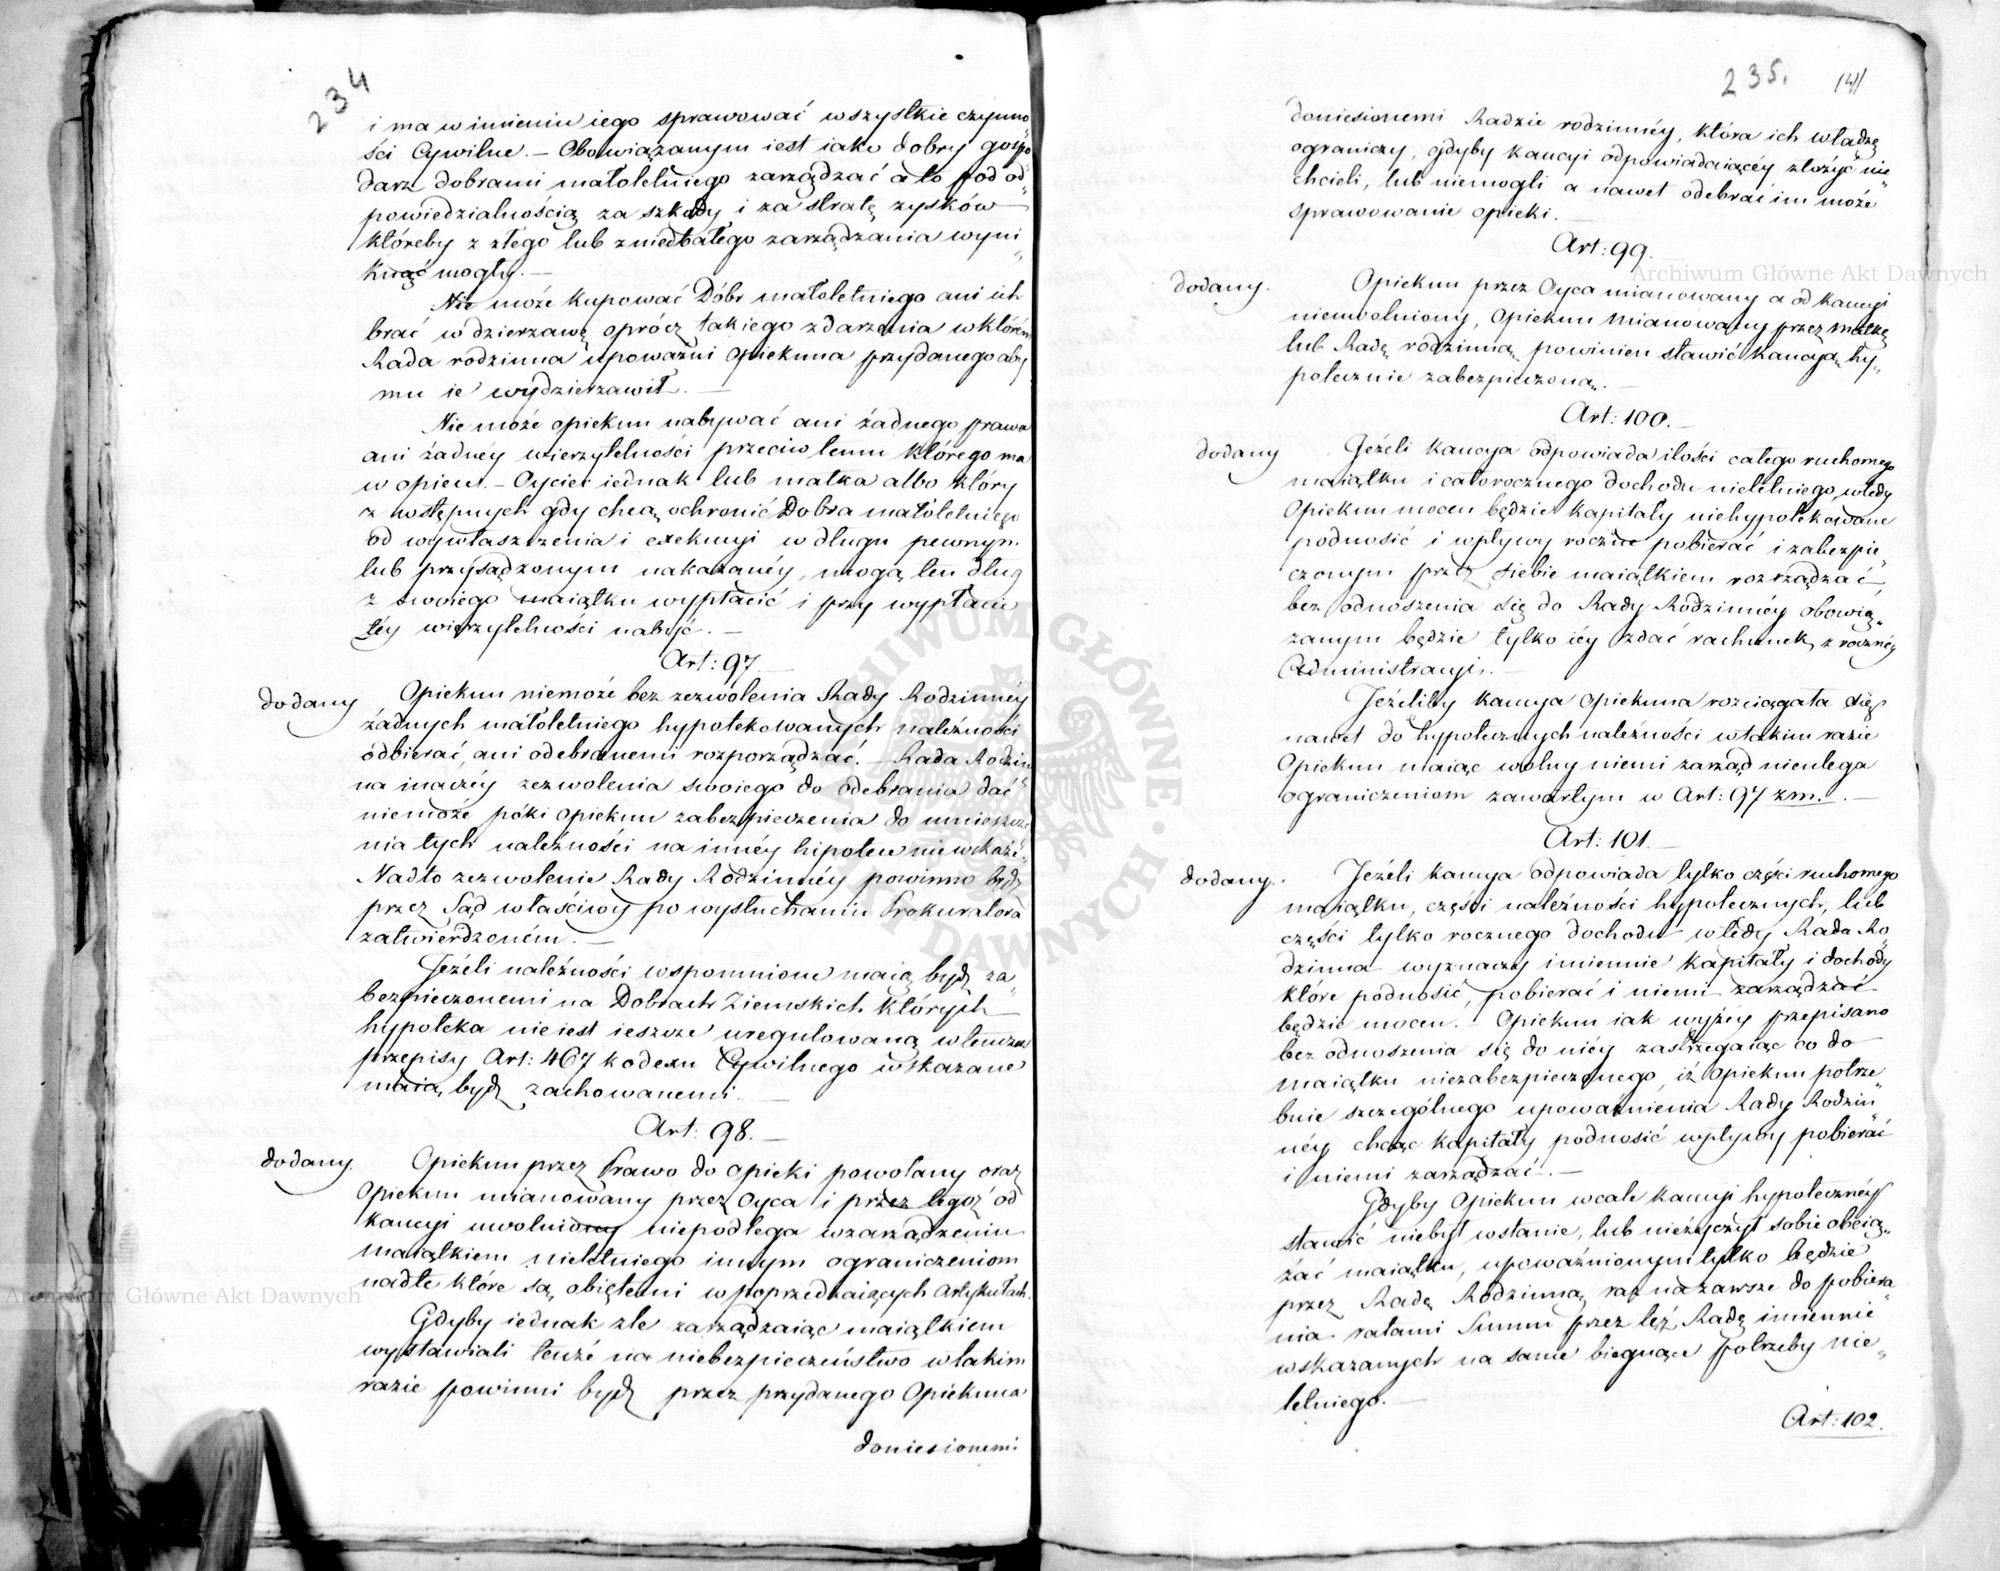 234
i ma w imieniu iego sprawować wszystkie czynno„
ści Cywilne. — Obowiązanym iest iako dobry gospo„
darz dobrami małoletniego zarządzać a to pod od„
powiedzialnością za szkody i za stratę zysków
któreby z złego lub zniedbałego zarządzania wyni„
knąć mogły. —
Nie może kupować Dóbr małoletniego ani ich
brać w dzierzawę oprócz takiego zdarzenia w którém
Rada rodzinna upoważni opiekuna przydanego aby
mu ie wydzierzawił. —
Nie może opiekun nabywać ani żadnego prawa
ani żadnéy wierzytelności przeciw temu którego ma
w opiece. — Oyciec iednak lub matka albo który
z wstępnych gdy chcą ochronić Dobra małoletniego
od wywłaszczenia i exekucyi w długu pewnym
lub przysądzonym nakazanéy, mogą ten dług
z swoiego maiątku wypłacić i przy wypłacie
téy wierzytelności nabyć. —
Art: 97. —
dodany
Opiekun niemoże bez zezwolenia Rady Rodzinnéy
żadnych małoletniego hypotekowanych należności
odbierać, ani odebranemi rozporządzać. — Rada Rodzin„
na inaczéy zezwolenia swoiego do odebrania dać
niemoże póki opiekun zabezpieczenia do umieszcze„
nia tych należności na innéy hipotece niewskaże.
Nadto zezwolenie Rady Rodzinnéy powinno bydź
przez Sąd właściwy po wysłuchaniu Prokuratora
zatwierdzoném. —
Jeżeli należności wspomnione maią bydź za„
bezpieczonemi na Dobrach Ziemskich których
hypoteka nie iest ieszcze uregulowaną wtenczas
przepisy Art: 467 kodexu Cywilnego wskazane
maią bydź zachowanemi. —
Art: 98. —
dodany.
Opiekun przez Prawo do opieki powołany oraz
Opiekun mianowany przez Oyca i przez tegoż od
kaucyi uwolniony niepodlega w zarządzeniu
maiątkiem nieletniego innym ograniczeniom
nad te które są obiętemi w poprzedzaiących Artykułach.
Gdyby iednak źle zarządzaiąc maiątkiem
wystawiali tenże na niebezpieczeństwo w takim
razie powinni bydź przez przydanego Opiekuna
doniesionemi
235.
doniesionemi Radzie rodzinnéy, która ich władzę
ograniczy, gdyby kaucyi odpowiadaiącéy złożyć nie„
chcieli, lub niemogli a nawet odebrać im może
sprawowanie opieki. —
Art: 99.
dodany.
Opiekun przez Oyca mianowany a od kaucyi
nieuwolniony, Opiekun mianowany przez matkę
lub Radę rodzinną powinien stawić kaucyą hy„
potecznie zabezpieczoną. —
Art: 100. —
dodany
Jeżeli kaucya odpowiada ilości całego ruchomego
maiątku i całorocznego dochodu nieletniego, wtedy
Opiekun mocen będzie kapitały niehypotekowane
podnosić i wpływy roczne pobierać i zabezpie„
czonym przez siebie maiątkiem rozrządzać
bez odnoszenia się do Rady Rodzinnéy obowią„
zanym będzie tylko iéy zdać rachunek z rocznéy
Administracyi. —
Jeżeliby kaucya opiekuna rozciągała się
nawet do hypotecznych należności w takim razie
Opiekun maiąc wolny niemi zarząd nieulega
ograniczeniom zawartym w Art: 97 zm. —
Art: 101. —
dodany.
Jeżeli kaucya odpowiada tylko części ruchomego
maiątku, części należności hypotecznych, lub
części tylko rocznego dochodu wtedy Rada Ro„
dzinna wyznaczy imiennie kapitały i dochody
które podnosić, pobierać i niemi zarządzać
będzie mocen. — Opiekun iak wyżéy przepisano
bez odnoszenia się do niéy zastrzegaiąc co do
maiątku niezabezpieczonego, iż Opiekun potrze„
buie szczególnego upoważnienia Rady Rodzin„
néy chcąc kapitały podnosić wpływy pobierać
i niemi zarządzać. —
Gdyby Opiekun wcale kaucyi hypotecznéy
stawić niebył wstanie, lub nieżyczył sobie obcią„
żać maiątku, upoważnionym tylko będzie
przez Radę Rodzinną raz na zawsze do pobiera„
nia ratami Summ przez tęż Radę imiennie
wskazanych na same biegnące potrzeby nie„
letniego. —
Art: 102.
Archiwum Główne Akt Dawnych
Archiwum Główne Akt Dawnych
ARCHIWUM GŁÓWNE AKT DAWNYCH